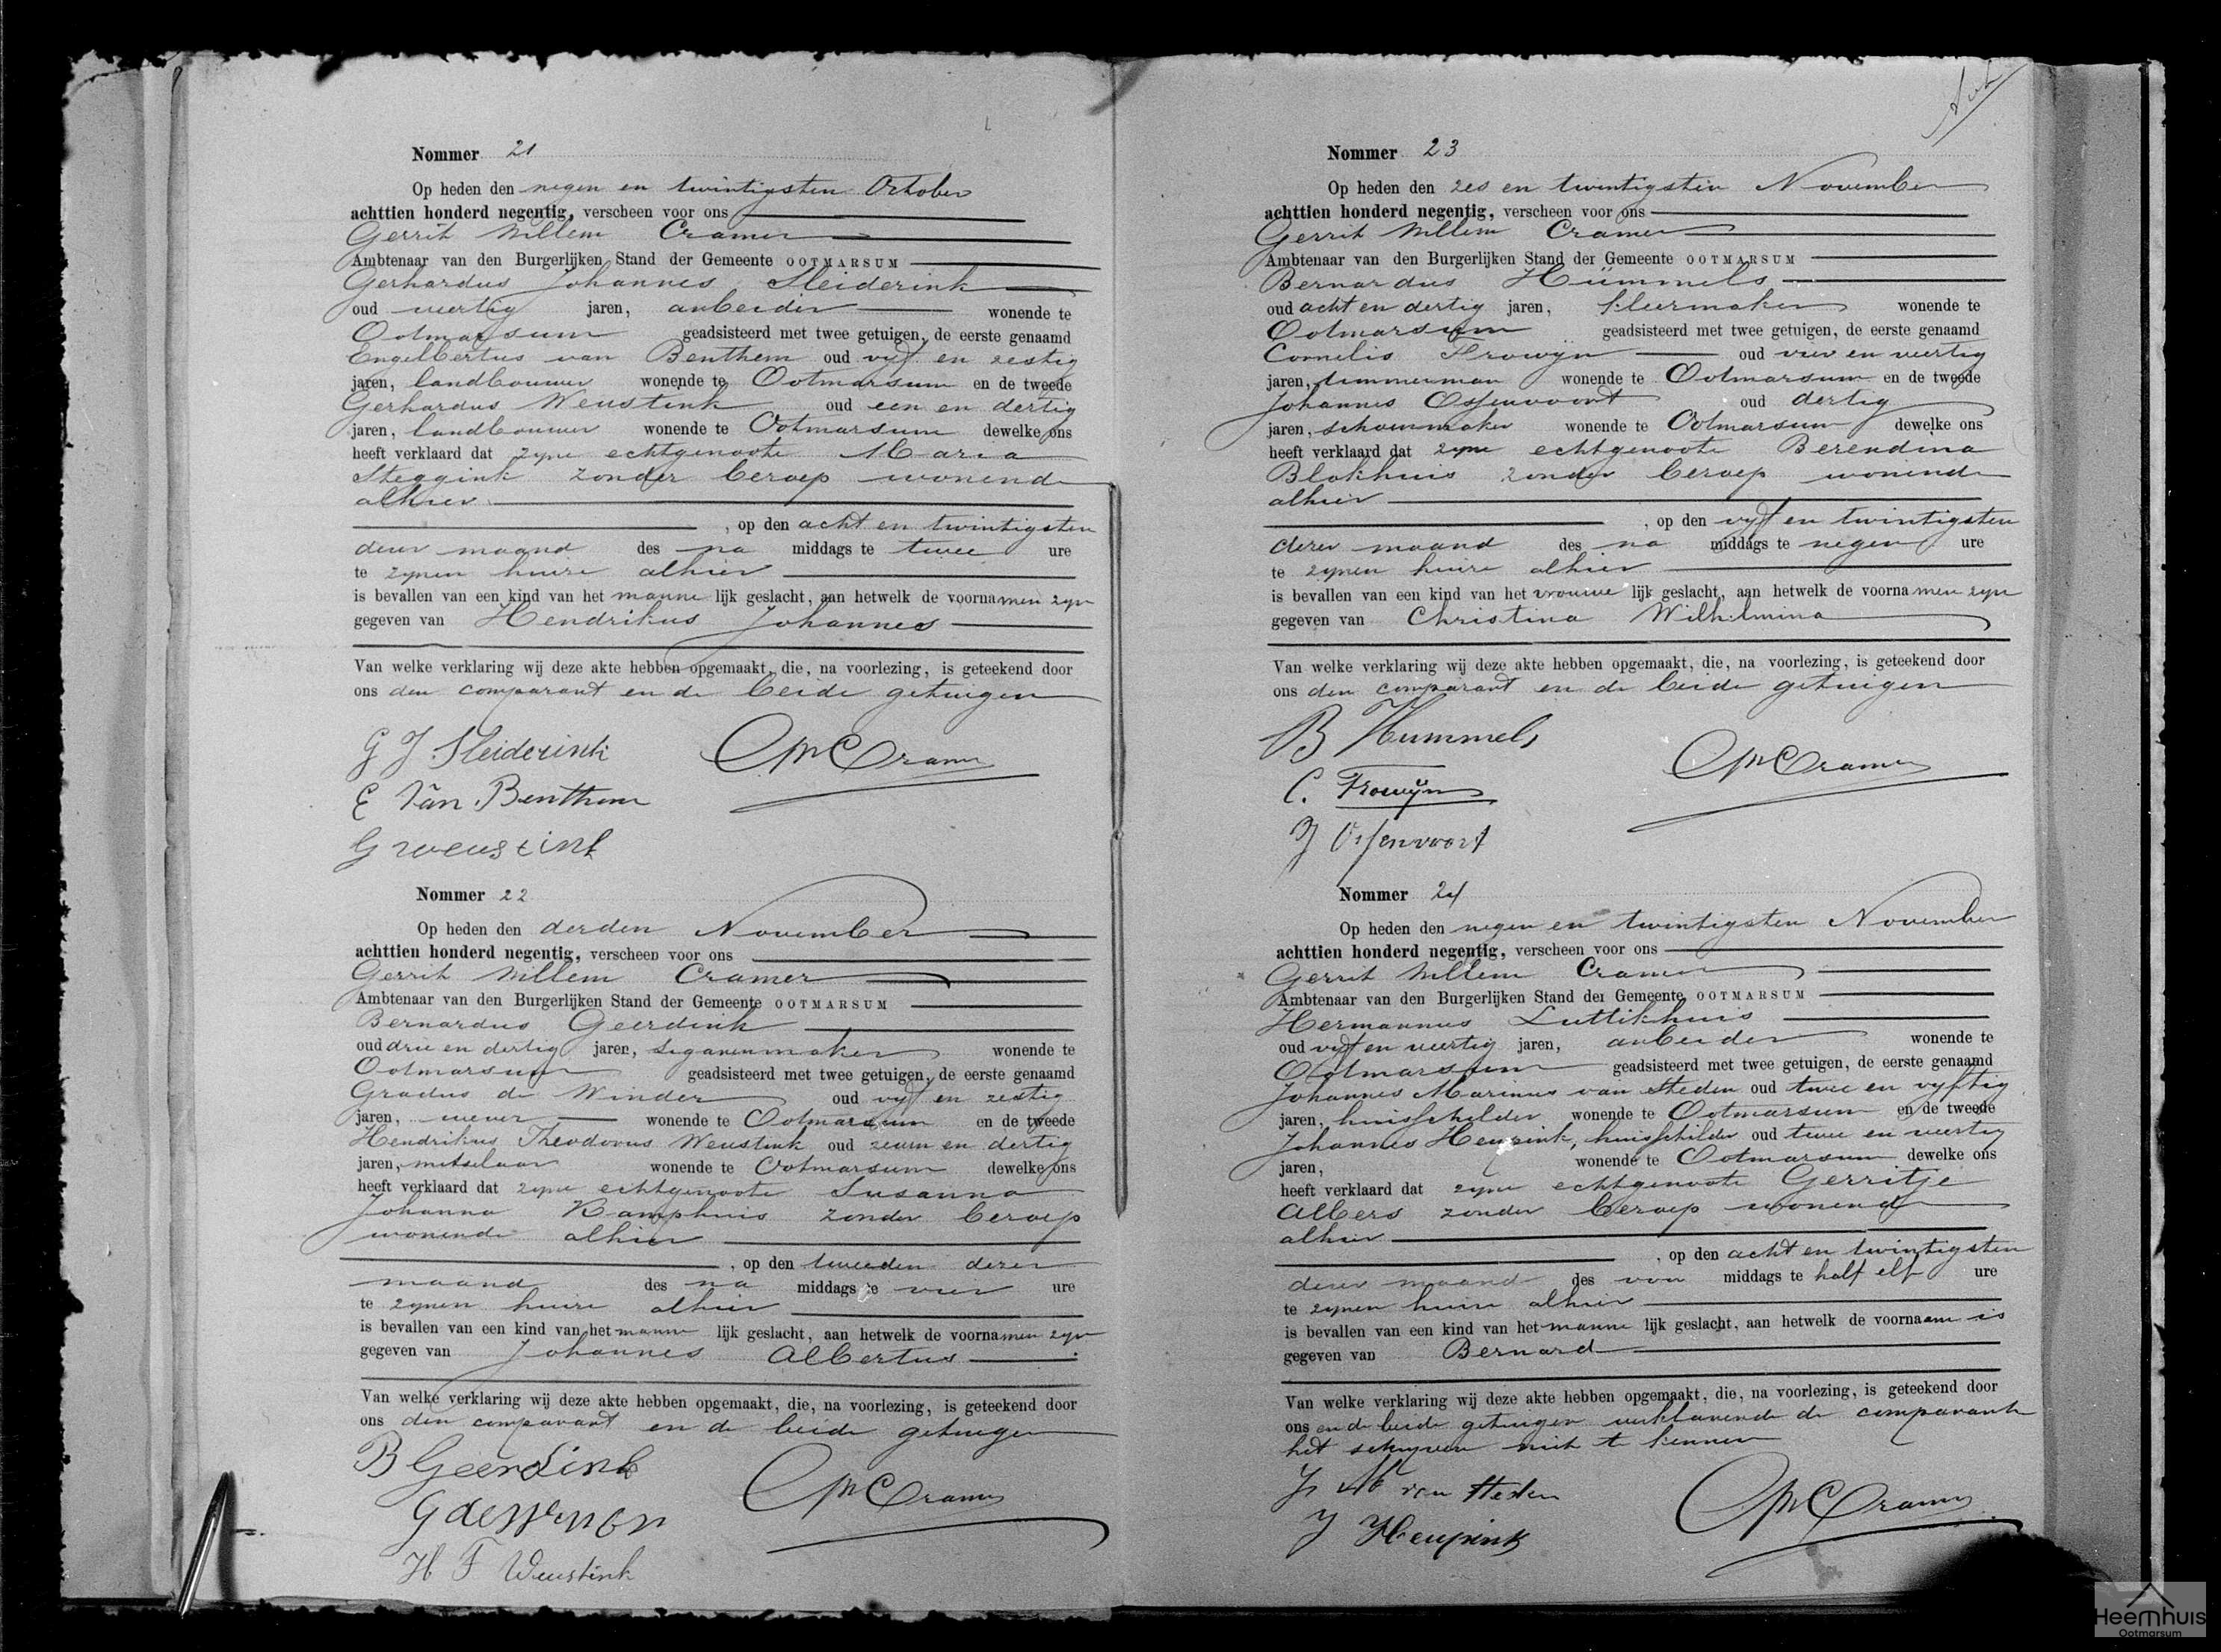 Nommer 21
Op heden den negen en twintigsten October
achttien honderd negentig, verscheen voor ons
Gerrit Willem Cramer
Ambtenaar van den Burgerlijken Stand der Gemeente OOTMARSUM
Gerhardus Johannes Sleiderink
oud veertig jaren, arbeider wonende te
Ootmarsum geadsisteerd met twee getuigen, de eerste genaamd
Engelbertus van Benthem oud vijf en zestig
jaren, landbouwer wonende te Ootmarsum en de tweede
Gerhardus Weustink oud een en dertig
jaren, landbouwer wonende te Ootmarsum dewelke ons
heeft verklaard dat zyne echtgenoote Maria
Steggink zonder beroep wonende
alhier
, op den acht en twintigsten
dezer maand des na middags te twee ure
te zynen huize alhier
is bevallen van een kind van het manne lijk geslacht, aan hetwelk de voornamen zyn
gegeven van Hendrikus Johannes
Van welke verklaring wij deze akte hebben opgemaakt, die, na voorlezing, is geteekend door
ons den comparant en de beide getuigen
G J Sleiderink
GWCramer
E Van Benthem
G Weustink
Nommer 22
Op heden den derden November
achttien honderd negentig, verscheen voor ons
Gerrit Willem Cramer
Ambtenaar van den Burgerlijken Stand der Gemeente OOTMARSUM
Bernardus Geerdink
oud drie en dertig jaren, sigarenmaker wonende te
Ootmarsum geadsisteerd met twee getuigen, de eerste genaamd
Gradus de Winder oud vyf en zestig
jaren, wever wonende te Ootmarsum en de tweede
Hendrikus Theodorus Weustink oud zeven en dertig
jaren, metselaar wonende te Ootmarsum dewelke ons
heeft verklaard dat zyne echtgenoote Susanna
Johanna Kamphuis zonder beroep
wonende alhier
, op den tweeden dezer
maand des na middags te vier ure
te zynen huize alhier
is bevallen van een kind van het manne lijk geslacht, aan hetwelk de voornamen zyn
gegeven van Johannes Albertus
Van welke verklaring wij deze akte hebben opgemaakt, die, na voorlezing, is geteekend door
ons den comparant en de beide getuigen
B Geerdink
GWCramer
H T Weustink
Nommer 23
Op heden den zes en twintigsten November
achttien honderd negentig, verscheen voor ons
Gerrit Willem Cramer
Ambtenaar van den Burgerlijken Stand der Gemeente OOTMARSUM
Bernardus Hümmels
oud acht en dertig jaren, kleermaker wonende te
Ootmarsum geadsisteerd met twee getuigen, de eerste genaamd
Cornelis Frowyn oud vier en veertig
jaren, timmerman wonende te Ootmarsum en de tweede
Johannes Ossenvoort oud dertig
jaren, schoenmaker wonende te Ootmarsum dewelke ons
heeft verklaard dat zyne echtgenoote Berendina
Blokhuis zonder beroep wonende
alhier
, op den vyf en twintigsten
dezer maand des na middags te negen ure
te zynen huize alhier
is bevallen van een kind van het vrouwe lijk geslacht, aan hetwelk de voornamen zyn
gegeven van Christina Wilhelmina
Van welke verklaring wij deze akte hebben opgemaakt, die, na voorlezing, is geteekend door
ons den comparant en de beide getuigen
B Hummels
GWCramer
C. Frowyn
J Ossenvoort
Nommer 24
Op heden den negen en twintigsten November
achttien honderd negentig, verscheen voor ons
Gerrit Willem Cramer
Ambtenaar van den Burgerlijken Stand der Gemeente OOTMARSUM
Hermannus Luttikhuis
oud vyf en veertig jaren, arbeider wonende te
Ootmarsum geadsisteerd met twee getuigen, de eerste genaamd
Johannes Marinus van Steden oud twee en vyftig
jaren, huisschilder wonende te Ootmarsum en de tweede
Johannes Heupink, huisschilder oud twee en veertig
jaren, wonende te Ootmarsum dewelke ons
heeft verklaard dat zyne echtgenoote Gerritje
Albers zonder beroep wonende
alhier
, op den acht en twintigsten
dezer maand des voor middags te half elf ure
te zynen huize alhier
is bevallen van een kind van het manne lijk geslacht, aan hetwelk de voornaam is
gegeven van Bernard
Van welke verklaring wij deze akte hebben opgemaakt, die, na voorlezing, is geteekend door
ons en de beide getuigen verklarende de comparant
het schryven niet te kennen
J M van Steden
GWCramer
J Heupink
Heemhuis
Ootmarsum